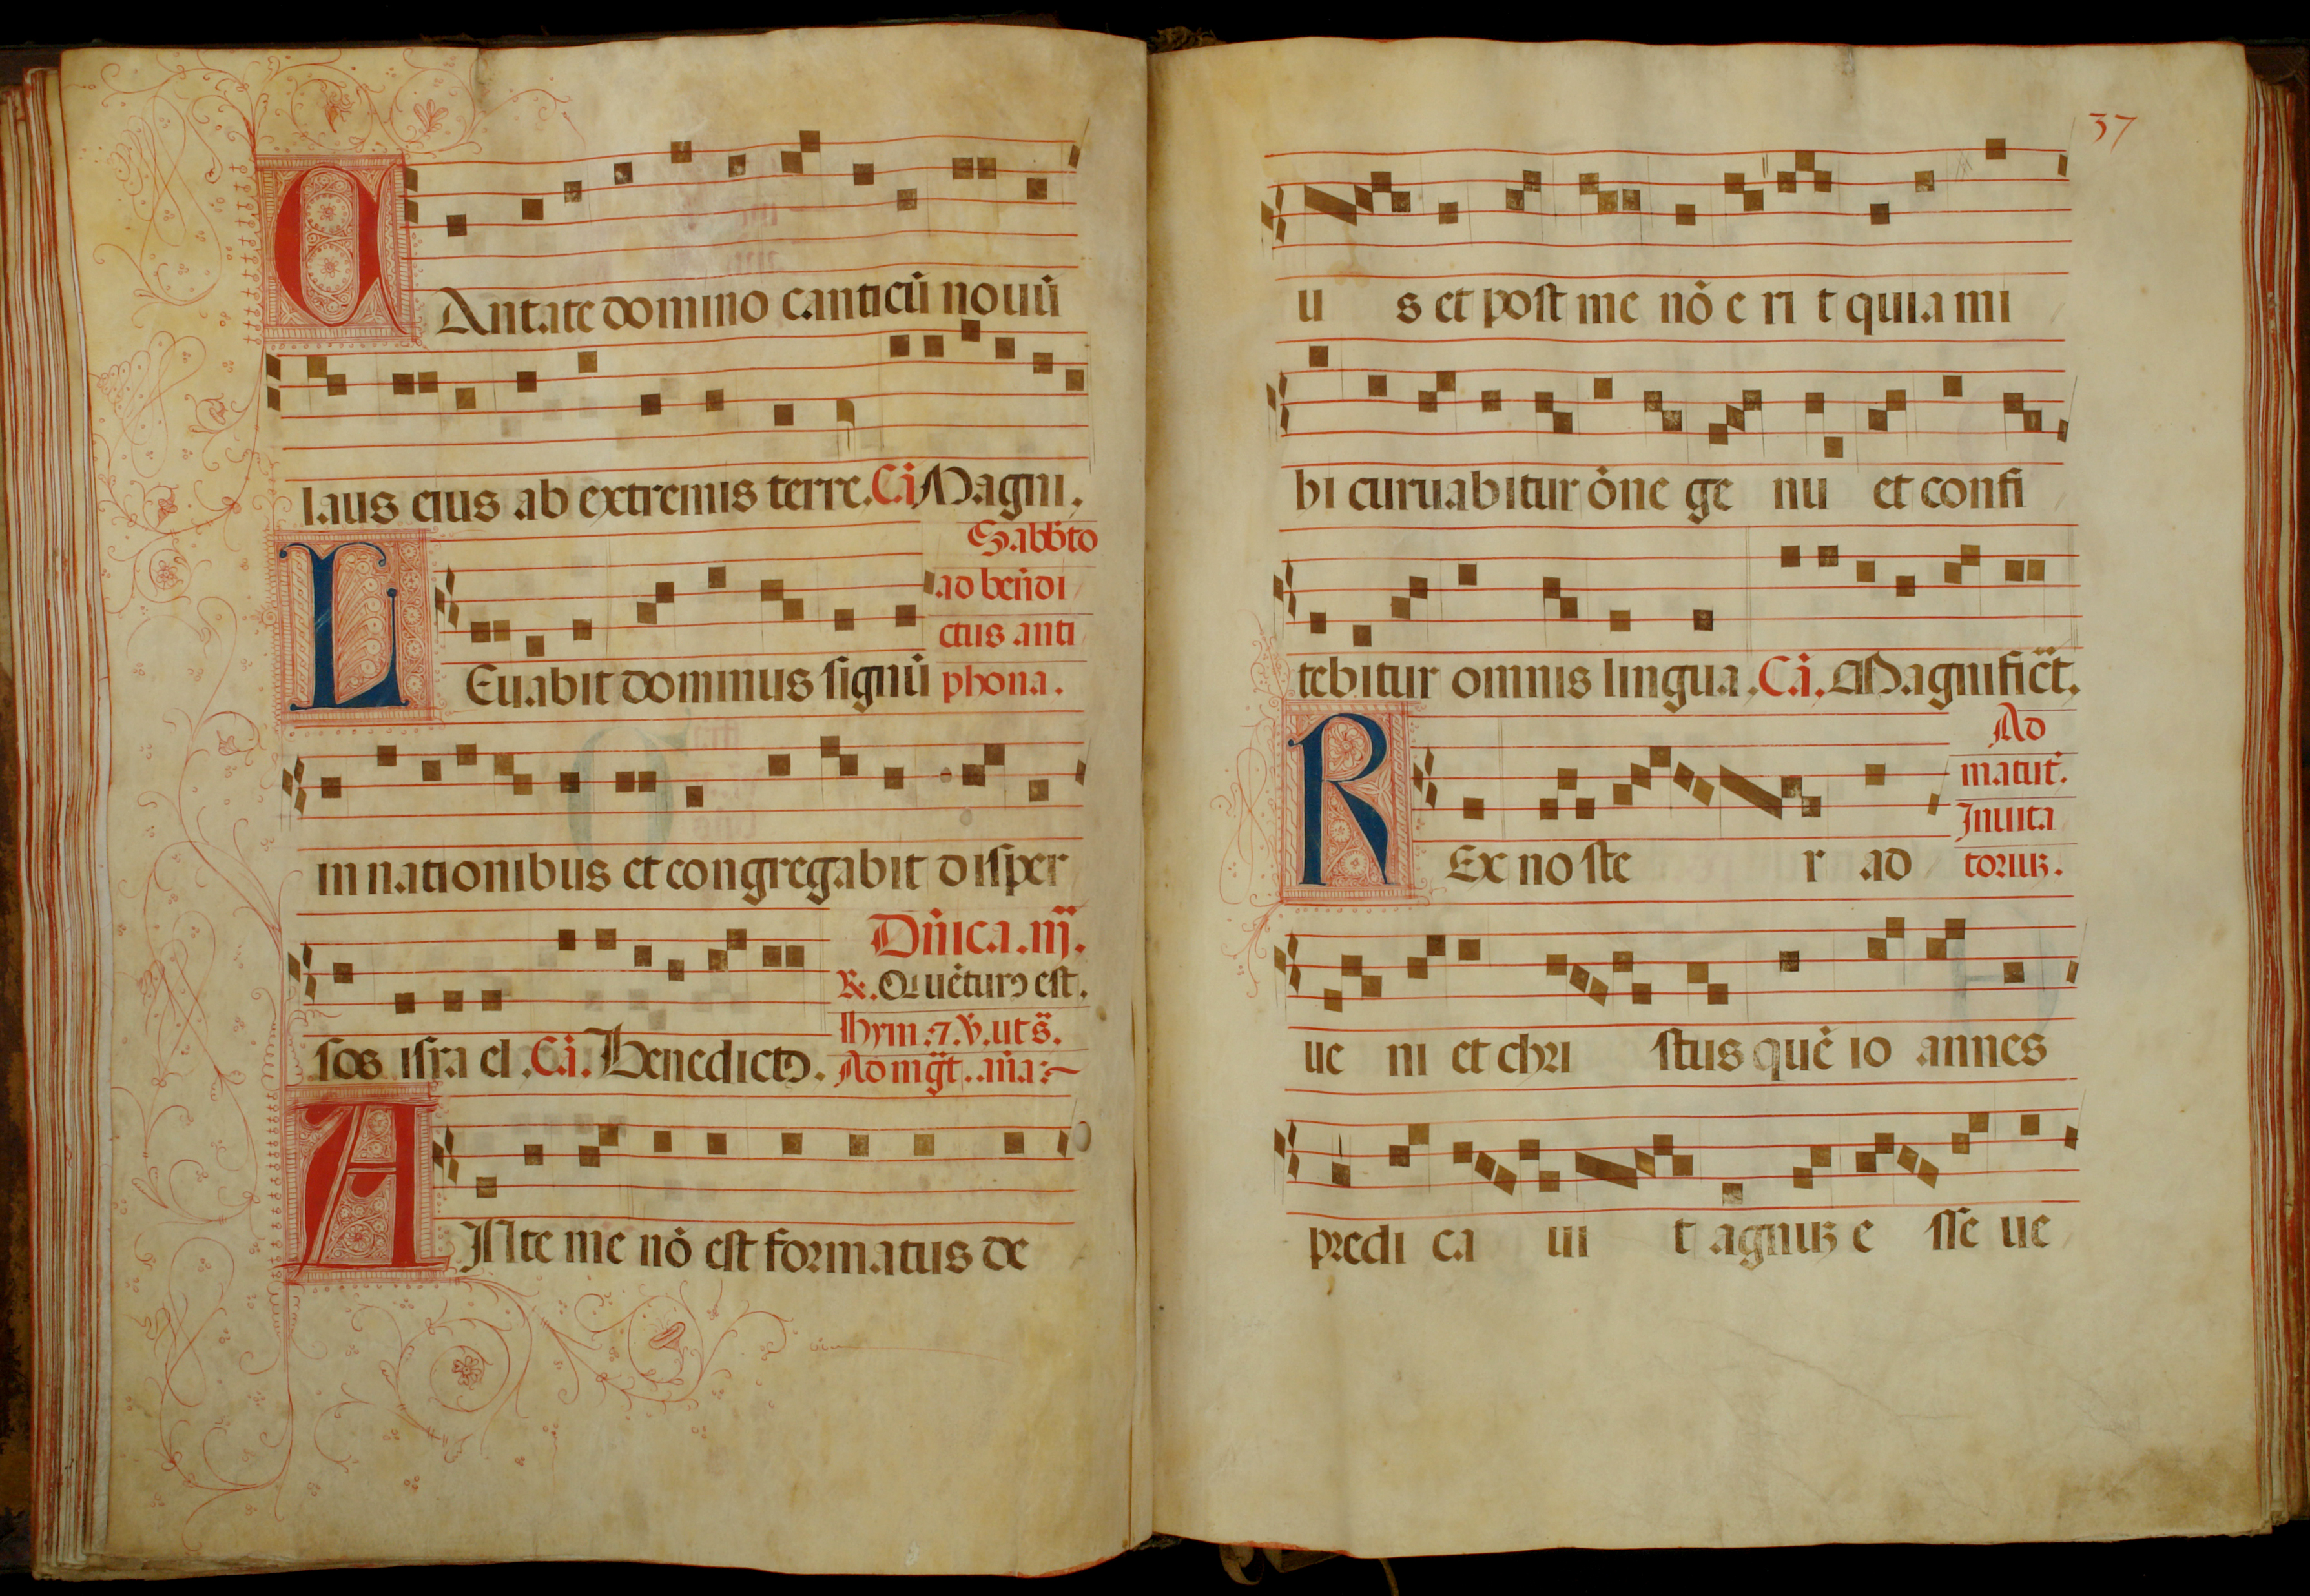 CAntate domino canticū nouū
laus eius ab extremis terre. Cā. Magni.
Sabb̄to
ad ben̄di
ctus anti
LEuabit dominus signū phona.
in nationibus et congregabit disper
Dn̄ica. iij.
℞. Qui uēturꝰ est.
Hym. ⁊. ℣. ut s̄.
sos isra el. Cā. Benedictꝰ. Ad mḡt. an̄a:~
ANte me nō est formatus de
37
u s et post me nō e ri t quia mi
bi curuabitur ōne ge nu et confi
tebitur omnis lingua. Cā. Magnific̄t.
Ad
matut̄.
Inuita
REx no ste r ad toriuꝫ.
ue ni et chri stus quē io annes
predi ca ui t agnuꝫ e sse ue